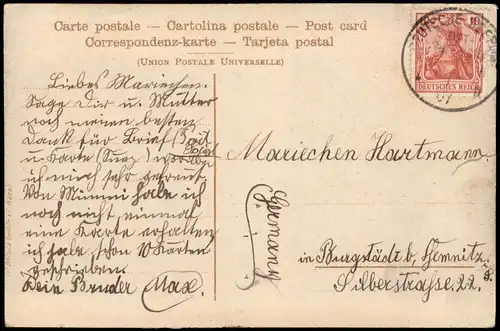 Carte postale – Cartolina postale – Post card
Correspondenz-karte – Tarjeta postal
(UNION POSTALE UNIVERSELLE)
10
DEUTSCHES REICH
DEUTSCHE
07
Liebes Mariechen.
Sage Dir u. Mutter
noch meinen besten
Dank für Brief (
u. Karte (Suez) worüber
ich mich sehr gefreut.
Von Mimmi habe ich
noch nicht einmal
eine Karte erhalten
ich habe schon 10 Karten
geschrieben.
Dein Bruder Max.
Mariechen Hartmann
Germany
in Burgstädt b/ Chemnitz i. S.
Silberstrasse 22.